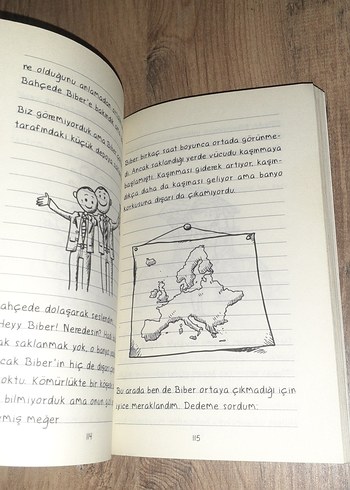 ne olduğunu anlamadan
Bahçede Biber'e bakmak
Biz göremiyorduk ama Biber
tarafındaki küçük deposu
Bahçede dolaşarak seslendim
Heyy Biber! Neredesin?
saklanmak yok, o banyo
Biber'in hiç de dışarı
yoktu. Kömürlükte bir köşede
bilmiyorduk ama onun
meğer
114
Biber birkaç saat boyunca ortada görünme-
di. Ancak saklandığı yerde vücudu kaşınmaya
başlamıştı. Kaşınması giderek artıyor, kaşın-
dıkça daha da kaşınası geliyor ama banyo
korkusuna dışarı da çıkamıyordu.
Bu arada ben de Biber ortaya çıkmadığı için
iyice meraklandım. Dedeme sordum:
115